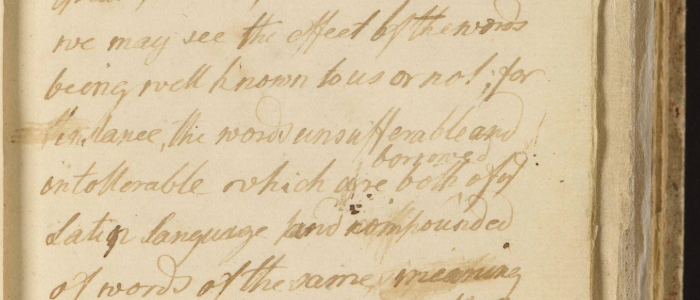 we may see the effect of the words
being well known to us or not; for
instance, the words unsufferable and
borrowed
intollerable which are both of ye
Latin language and compounded
of words of the same meaning